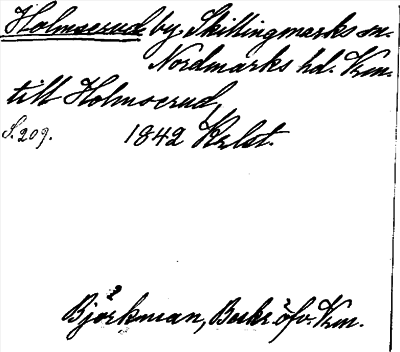 Holmserud by Skillingmarks sn.
Nordmarks hd. Vrm.
till Holmserud,
S. 209. 1842 Krlst.
Björkman, Beskr. öfv. Vrm.